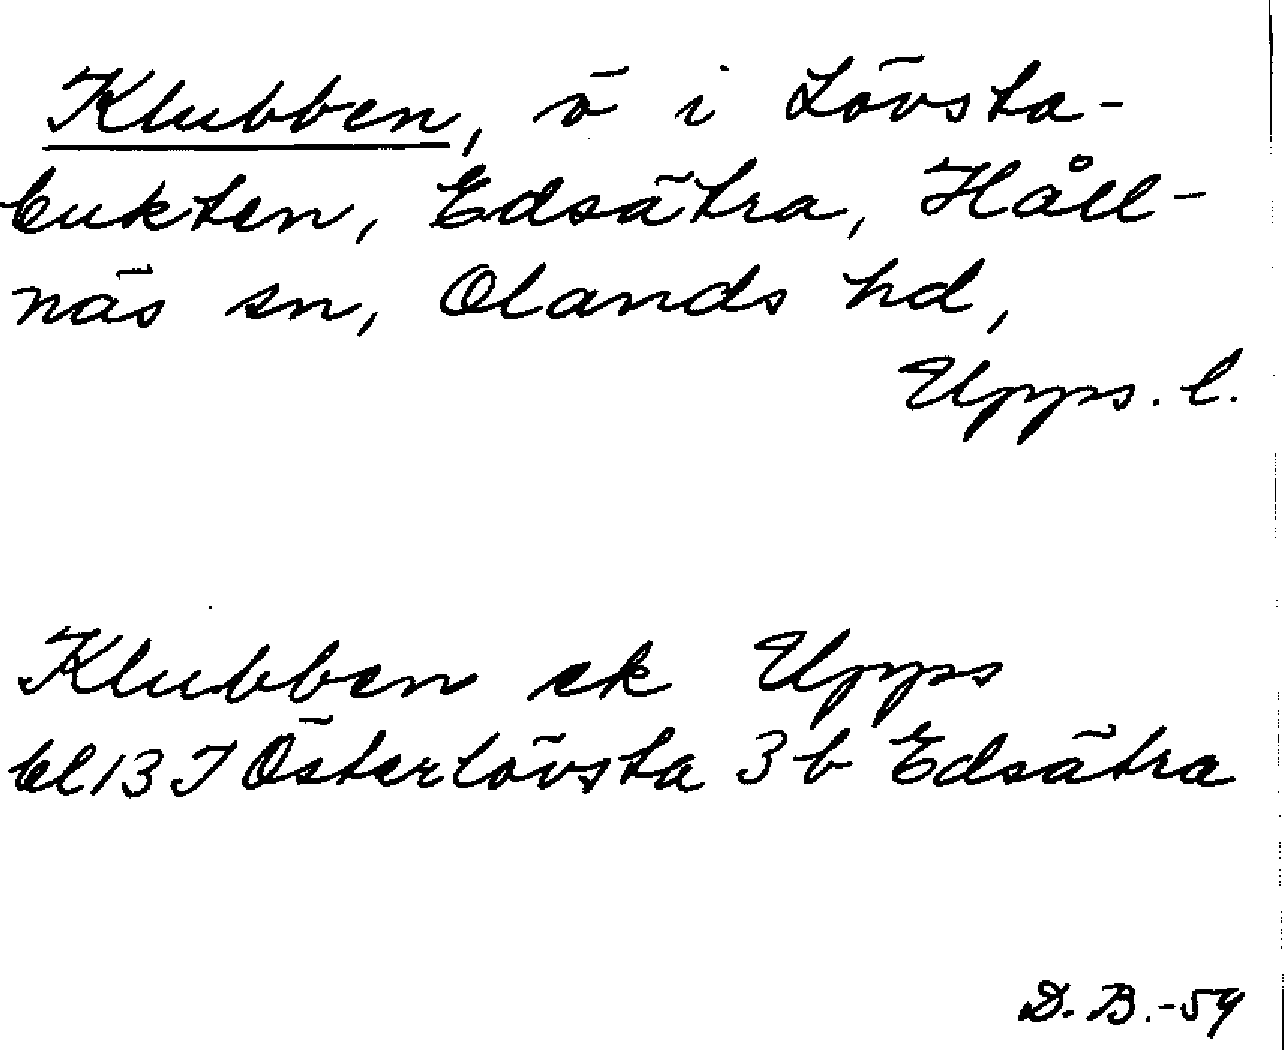 Klubben, ö i Lövsta-
bukten, Edsätra, Håll-
näs sn, Olands hd,
Upps. l.
Klubben ek Upps
bl 13 I Österlövsta 3 b Edsätra
D. B. -59